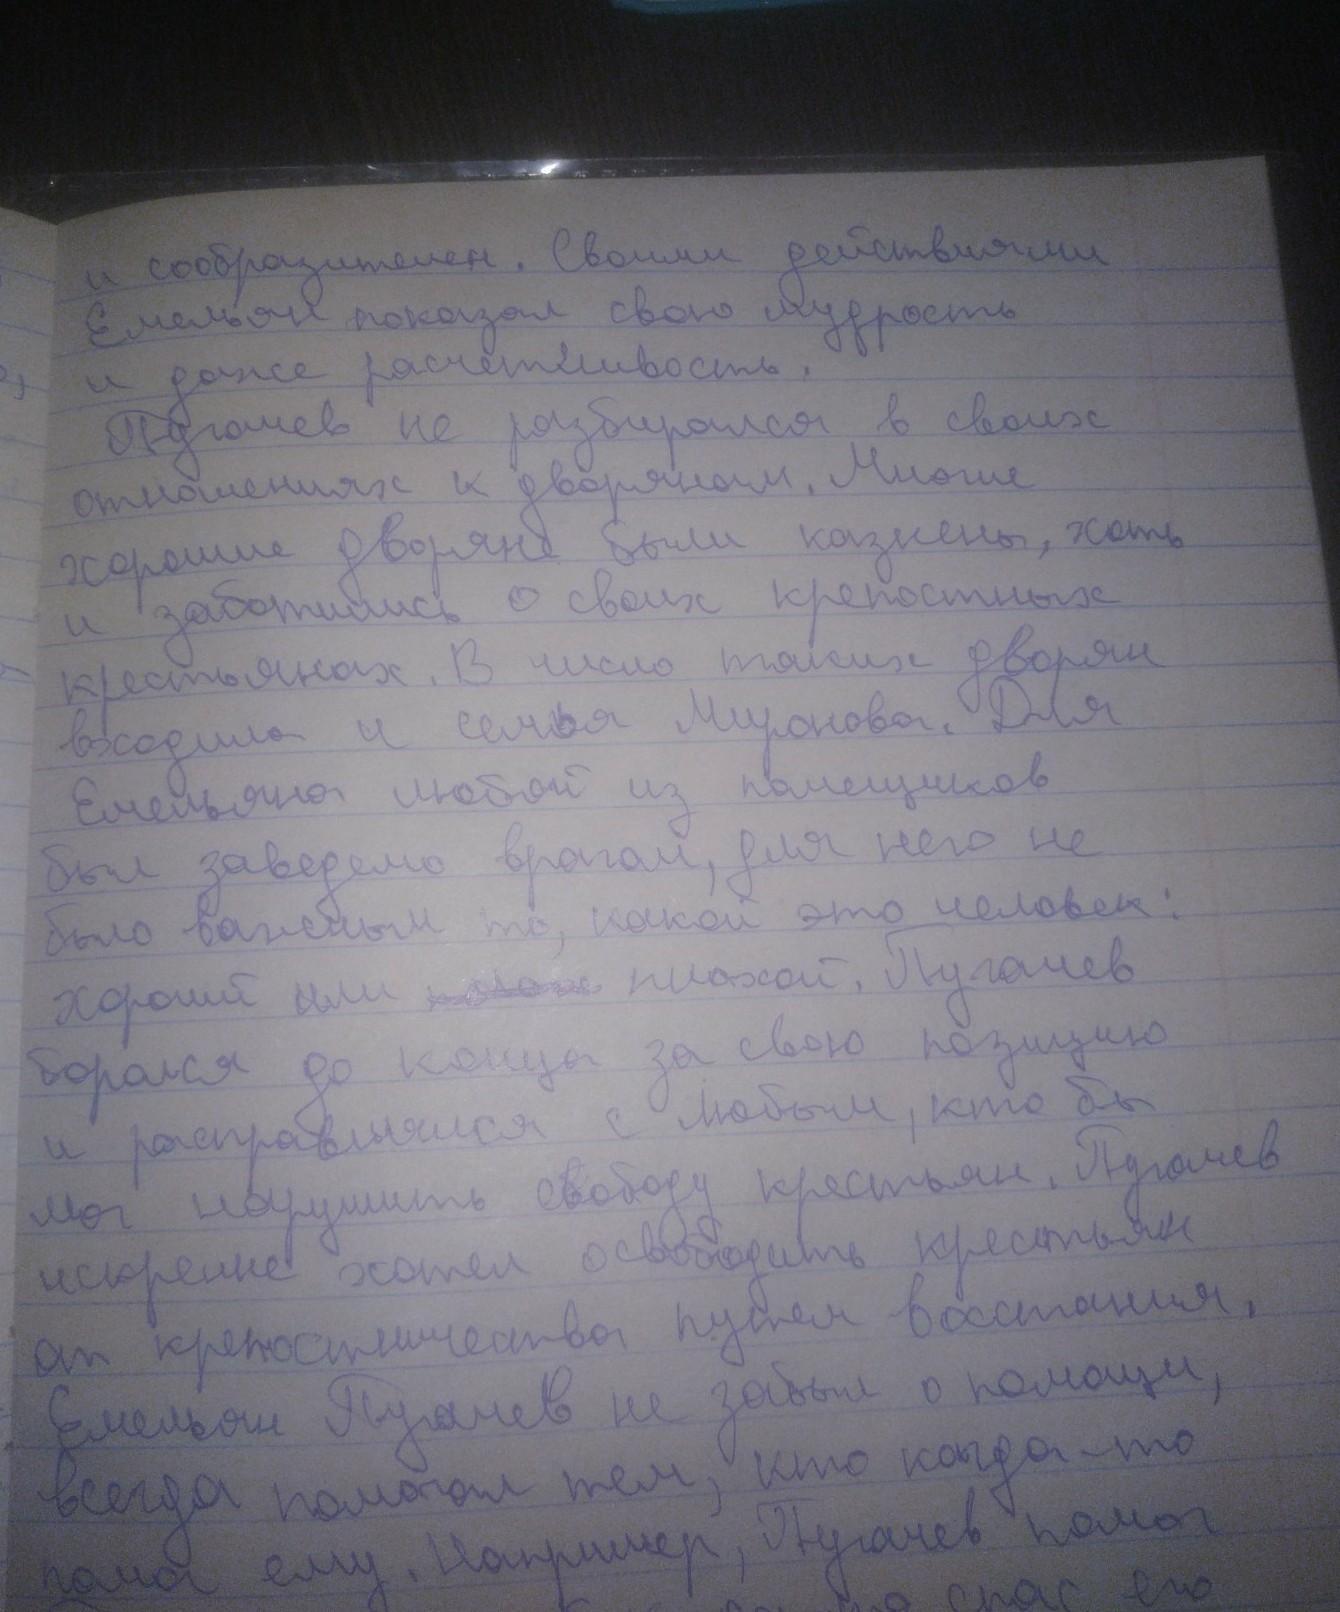 и сообразителен. Своими действиями
Емельян показал свою мудрость
и даже расчетливость.
Пугачев не разбирался в своих
отношениях к дворянам. Многие
хорошие дворяне были казнены, хоть
и заботились о своих крепостных
крестьянах. В число таких дворян
входила и семья Миронова. Для
Емельяна любой из помещиков
был заведемо врагом, для него не
было важным то, какой это человек:
хороший или плохой. Пугачев
боролся до конца за свою позицию
и расправлялся с любым, кто бы
мог нарушить свободу крестьян. Пугачев
искренне хотел освободить крестьян
от крепостничества путем восстания.
Емельян Пугачев не забыл о помощи,
всегда помогал тем, кто когда-то
помог ему. Например, Пугачев помог
спас его